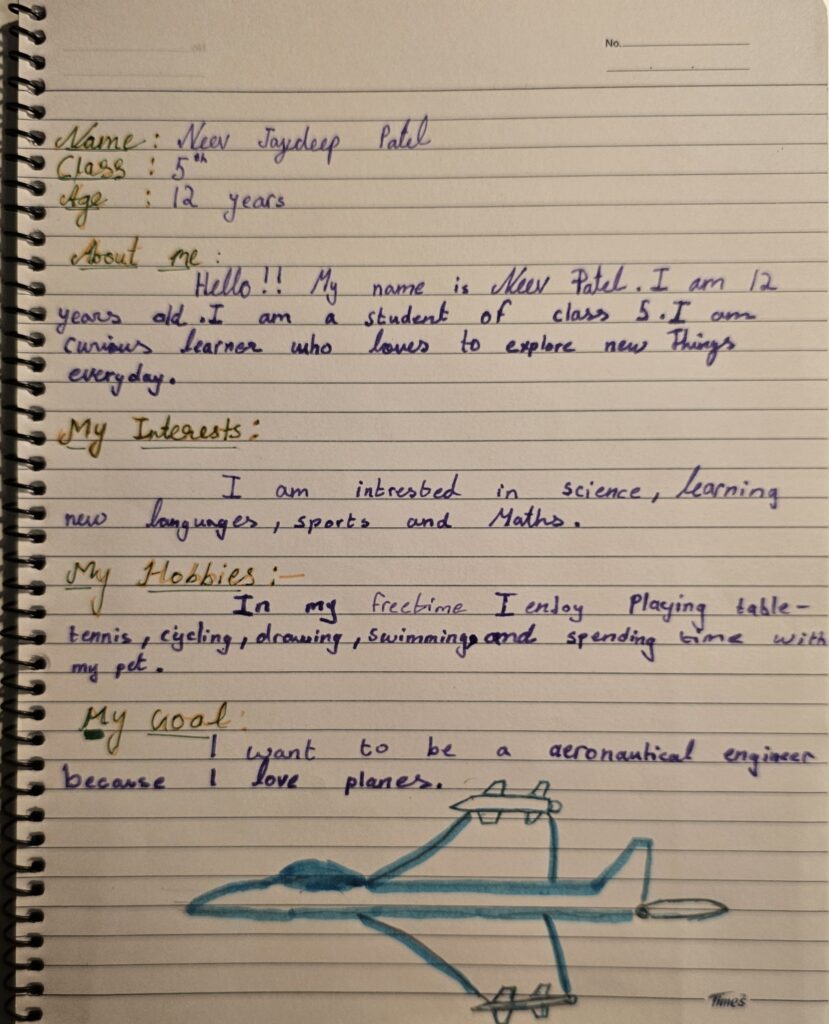 No.
Name : Neev Jaydeep Patel
Class : 5th
Age : 12 years
About me :
Hello!! My name is Neev Patel. I am 12
years old. I am a student of class 5. I am
curious learner who loves to explore new Things
everyday.
My Interests :
I am intrested in science, learning
new languages, sports and Maths.
My Hobbies :-
In my freetime I enjoy Playing table-
tennis, cycling, drawing, swimming, and spending time with
my pet.
My Goal:
I want to be a aeronautical engineer
because I love planes.
Times